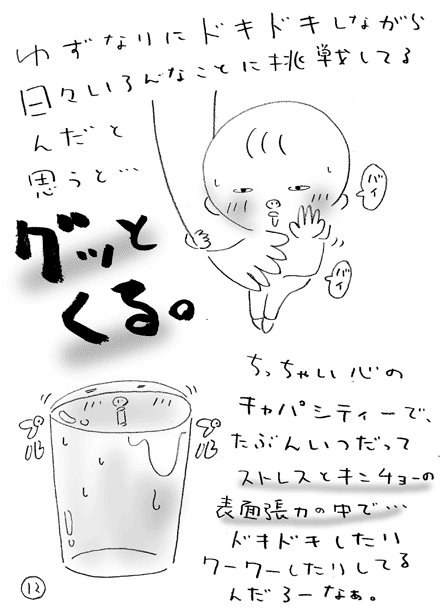 ゆずなりにドキドキしながら
日々いろんなことに挑戦してる
んだと
思うと…
グッと
くる。
バイ
バイ
ちっちゃい心の
キャパシティーで、
たぶんいつだって
ストレスとキンチョーの
表面張力の中で…
ドキドキしたり
ワーワーしたりしてる
んだろーなぁ。
12